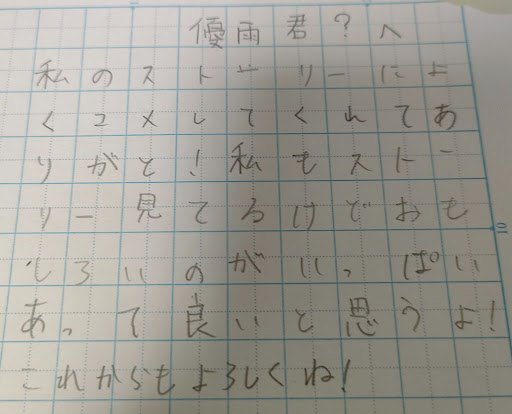 優雨君?へ
私のストーリーによ
くコメしてくれてあ
りがと!私もストー
リー見てるけどおも
しろいのがいっぱい
あって良いと思うよ!
これからもよろしくね!